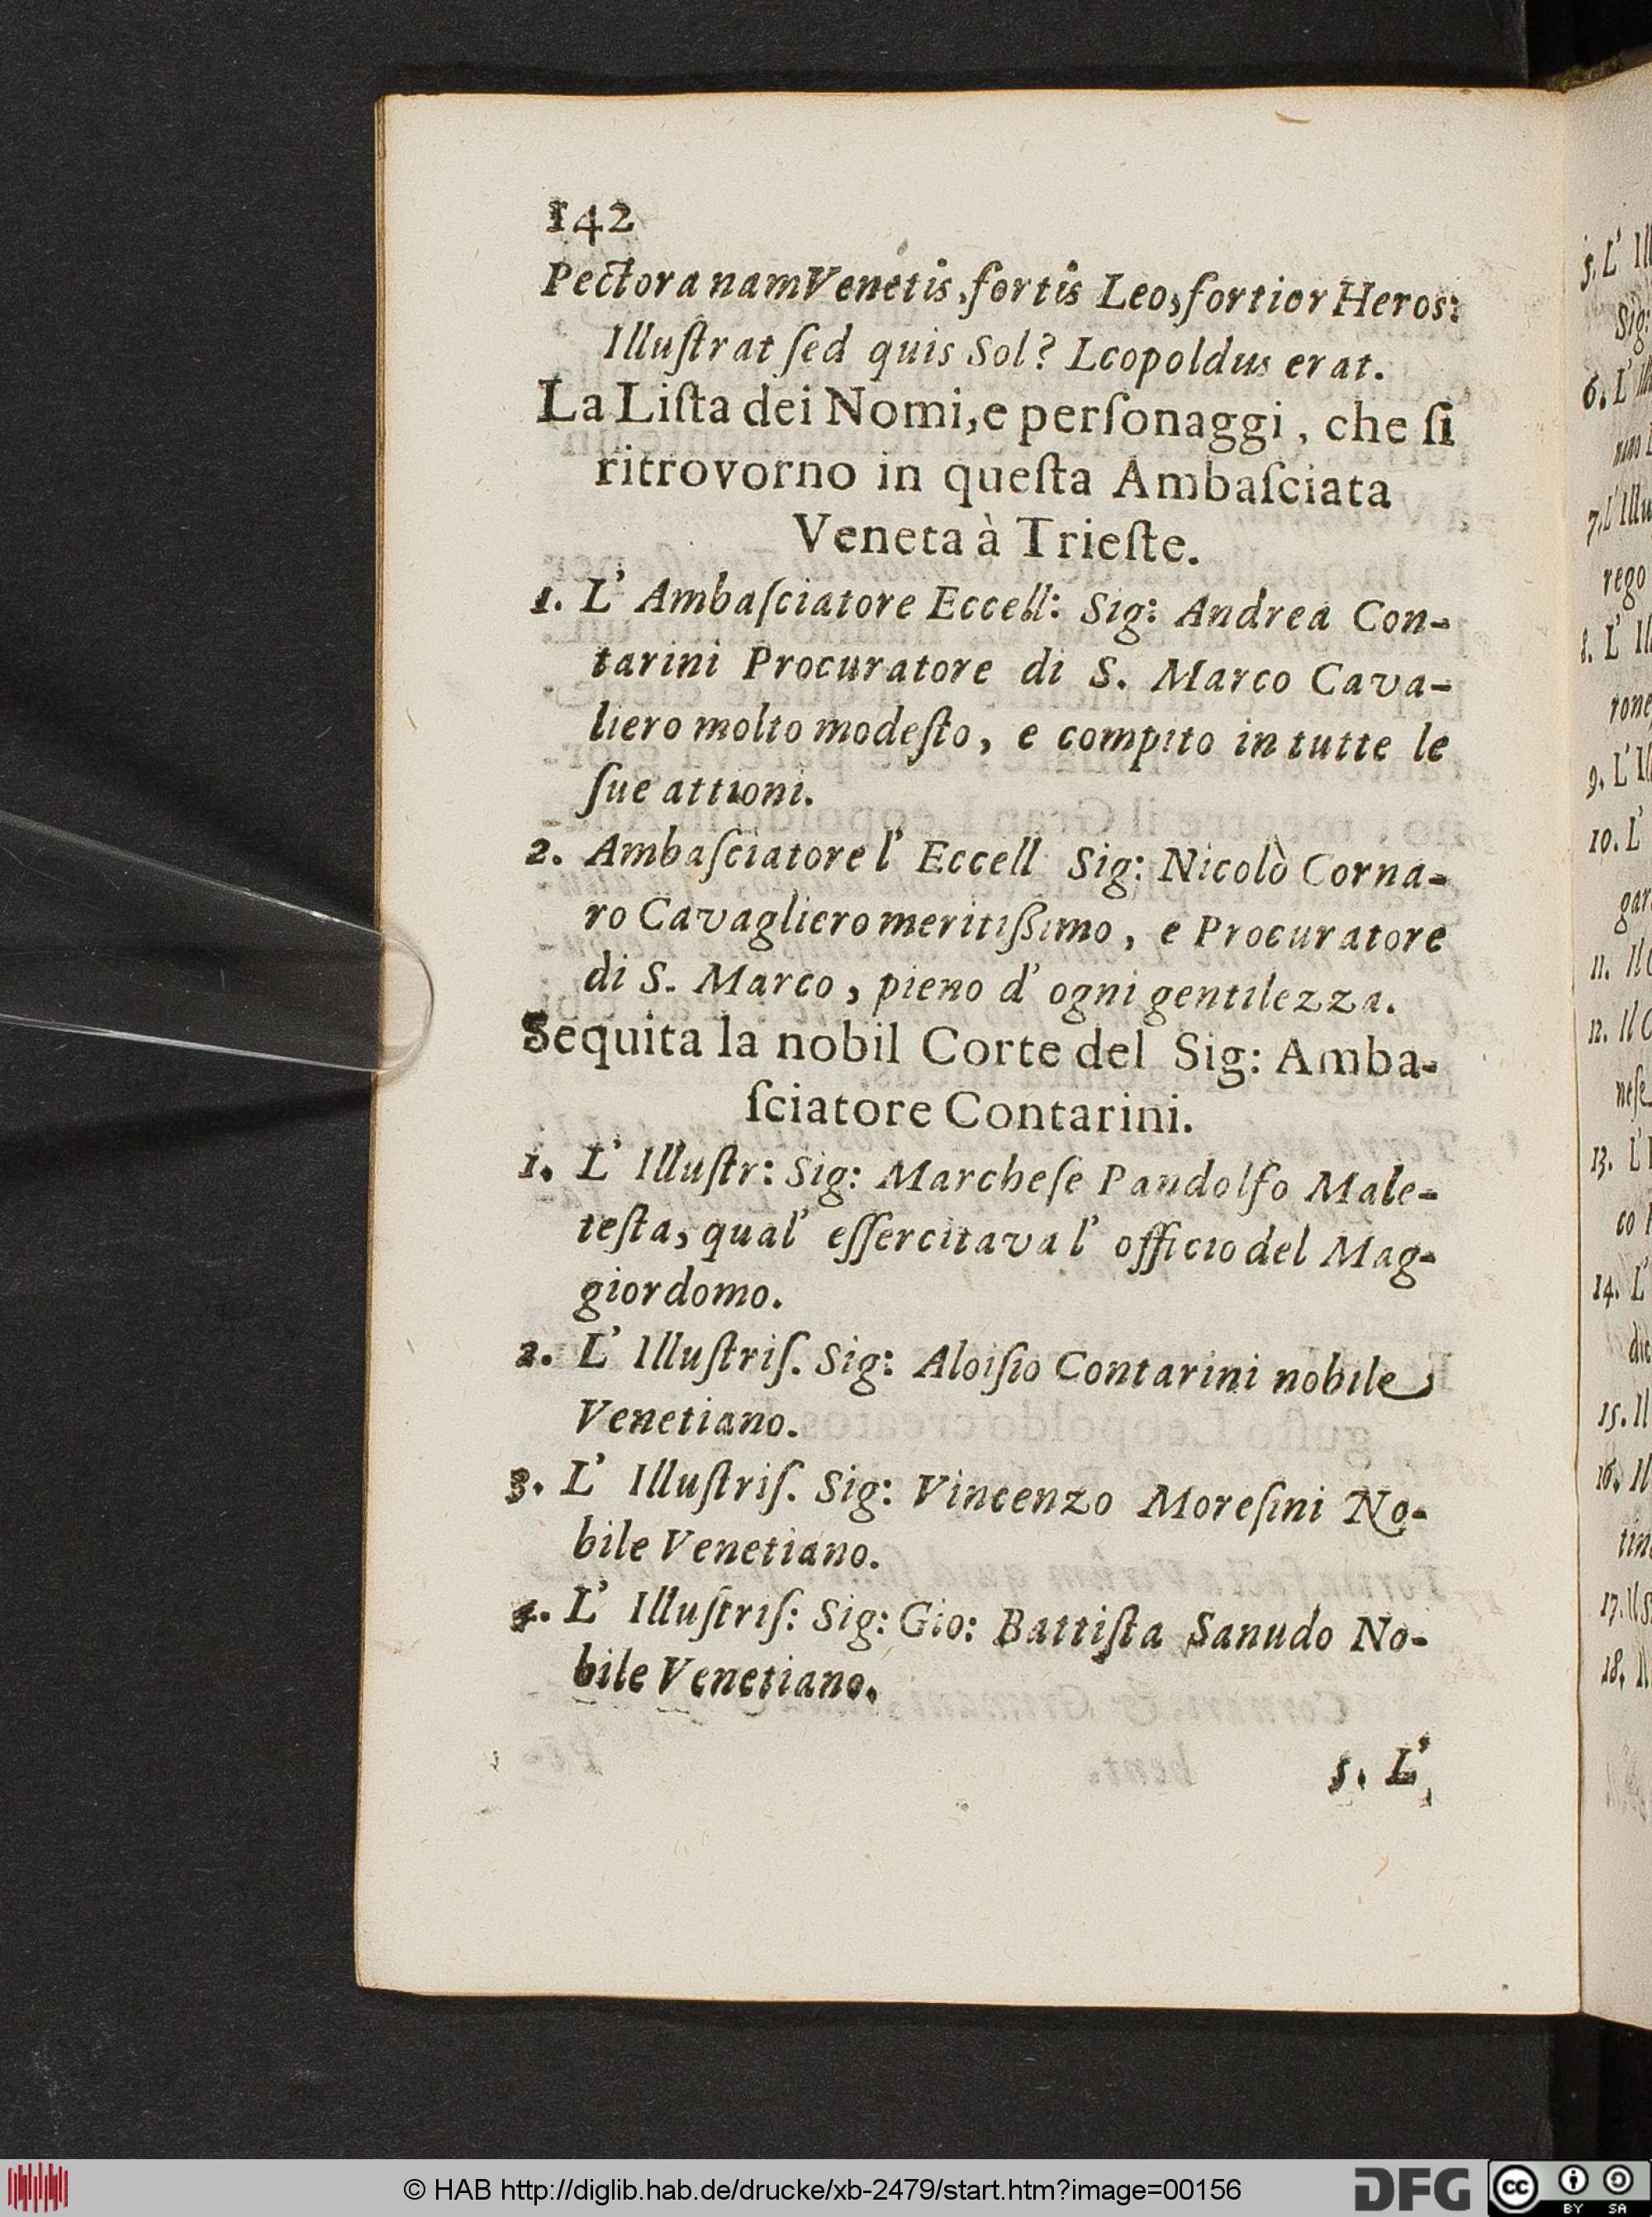 142
Pectora nam Venetis, fortis Leo, fortior Heros:
Illuſtrat ſed quis Sol? Lcopoldus erat.
La Liſta dei Nomi, e perſonaggi, che ſi
ritrovorno in queſta Ambaſciata
Veneta à Trieſte.
1. L' Ambaſciatore Eccell: Sig: Andrea Con-
tarini Procuratore di S. Marco Cava-
liero molto modeſto, e compito in tutte le
ſue attioni.
2. Ambaſciatore l' Eccell Sig: Nicolò Corna-
ro Cavagliero meritiſsimo, e Procuratore
di S. Marco, pieno d' ogni gentilezza.
Sequita la nobil Corte del Sig: Amba-
ſciatore Contarini.
1. L' Illuſtr: Sig: Marcheſe Pandolfo Male-
teſta, qual' eſſercitava l' officio del Mag-
giordomo.
2. L' Illuſtriſ. Sig: Aloiſio Contarini nobile
Venetiano.
3. L' Illuſtriſ. Sig: Vincenzo Moreſini No-
bile Venetiano.
4. L' Illuſtriſ: Sig: Gio: Battiſta Sanudo No-
bile Venetiano.
5. L'
5. L' Ill
Sig:
6. L' Ill
7. L' Illu
rego
8. L' Il
rone
9. L' Il
10. L'
gar
11. Il
12. Il C
neſe
13. L'
co
14. L'
15. Il
16. Il
tin
17. Il S
18. Il
© HAB http://diglib.hab.de/drucke/xb-2479/start.htm?image=00156
DFG
cc
BY SA